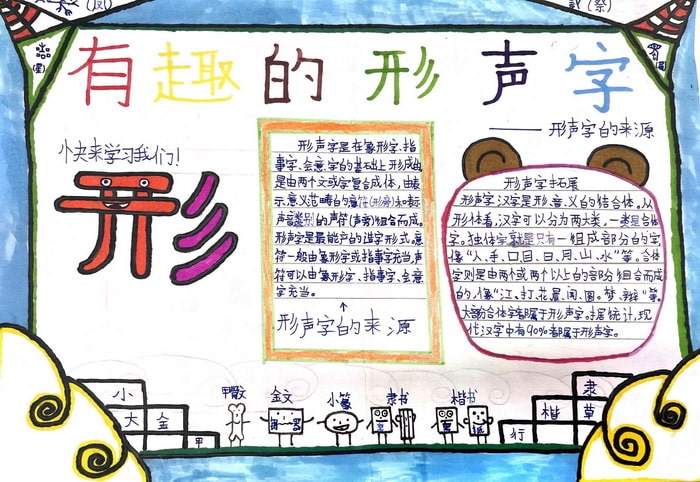 (凤)
(祭)
(星)
有趣的形声字
——形声字的来源
快来学习我们!
形
形声字是在象形字、指
事字、会意字的基础上形成的,
是由两个文或字复合成体,由表
示意义范畴的意符(形旁)和表示
声音类别的声符(声旁)组合而成。
形声字是最能产的造字形式。意
符一般由象形字或指事字充当,声
符可以由象形字、指事字、会意
字充当。
↑
形声字的来源
形声字拓展
形声字汉字是形、音、义的结合体。从
形体看,汉字可以分为两大类,一类是合体
字。独体字就是只有一组成部分的字
像“人、手、口、目、日、月、山、水”等。合体
字则是由两个或两个以上的部分组合而成
的,像“江、打、花、景、闻、圆、梦、辩”等。
大部分合体字都属于形声字。据统计,现
代汉字中有90%都属于形声字。
小
大 金
甲
甲骨文
金文
小篆
隶书
楷书
隶
楷 草
行